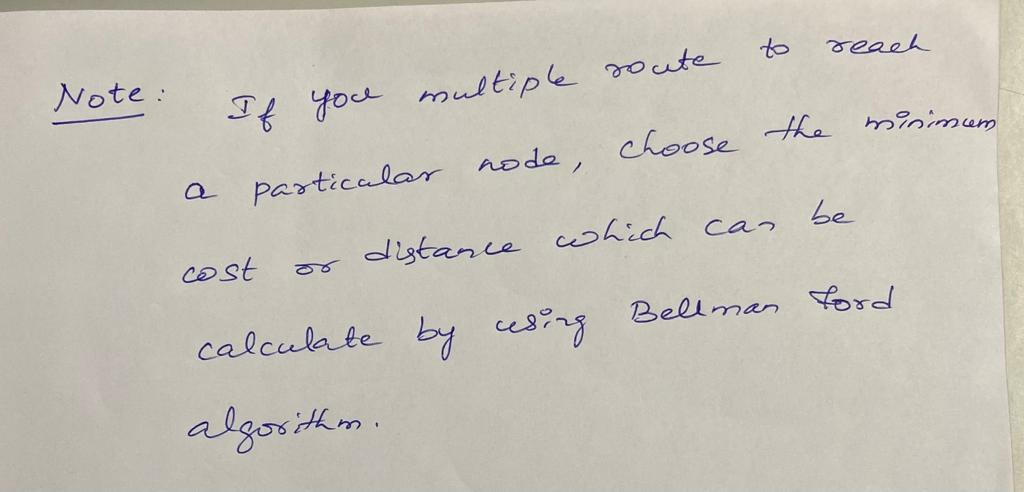 Note: If you multiple route to reach
a particular node, choose the minimum
cost or distance which can be
calculate by using Bellman Ford
algorithm.